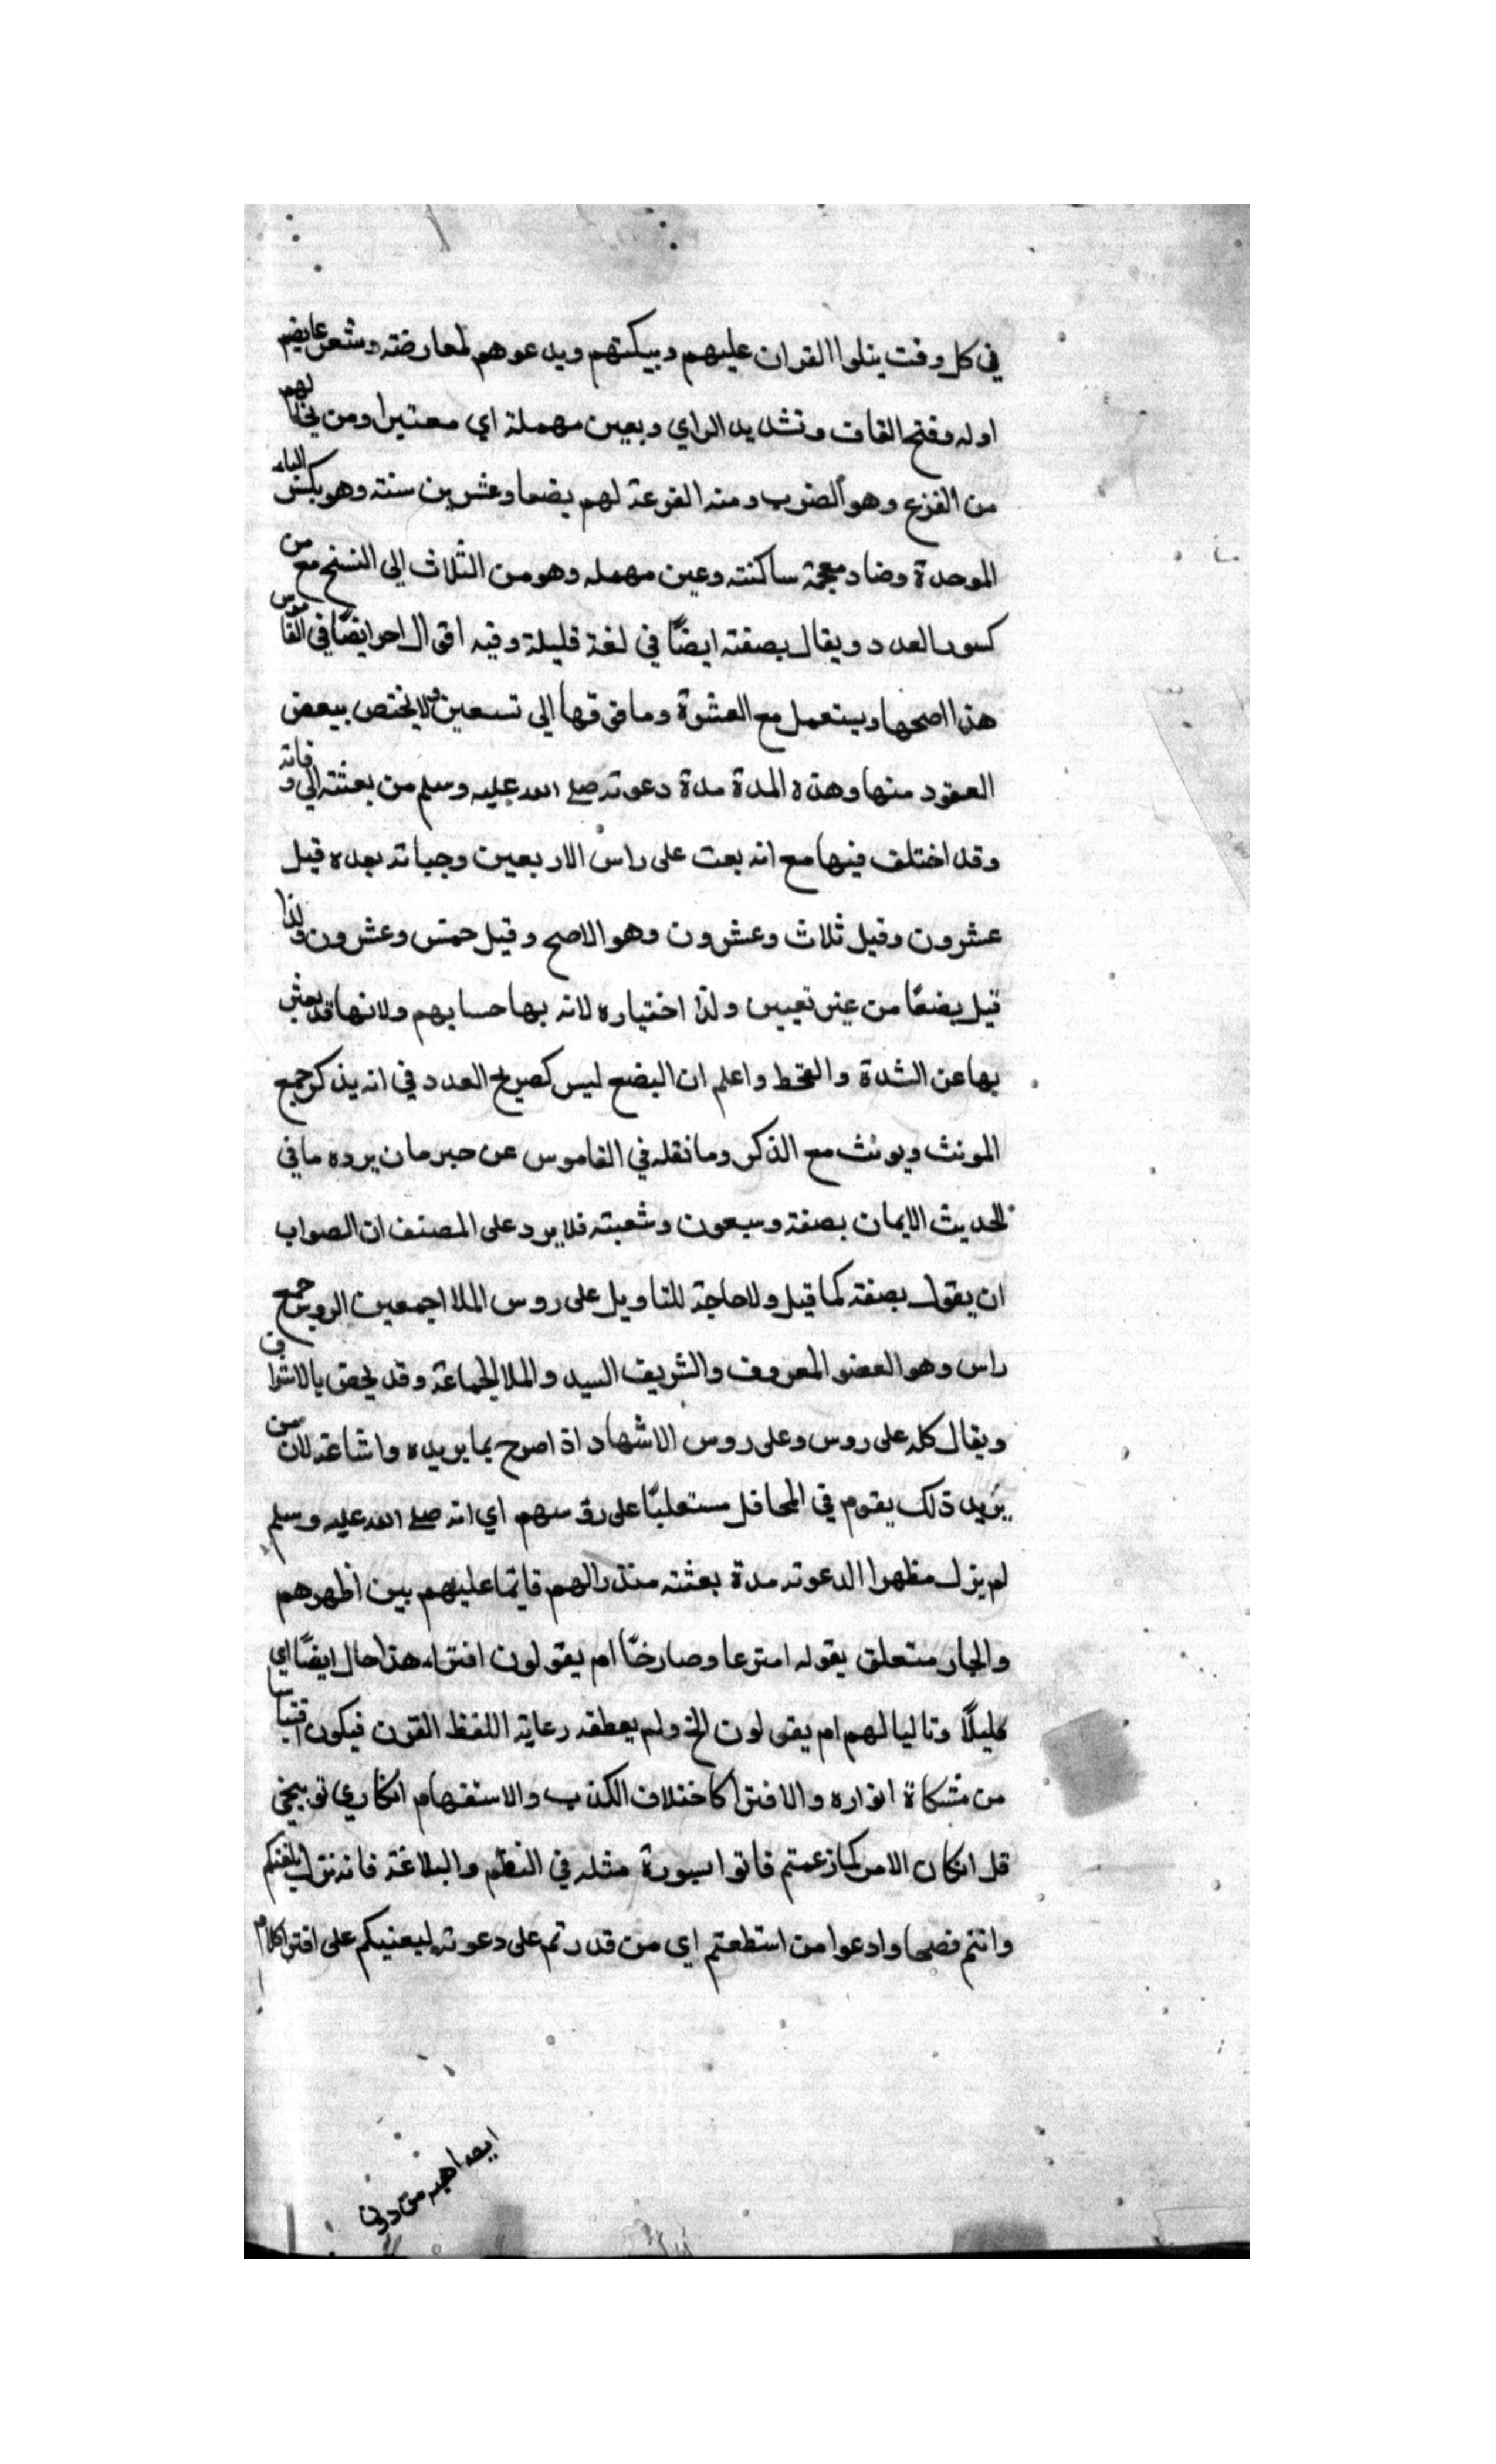 في كل وقت يتلوا القران عليهم ويبكتهم ويدعوهم لمعارضته وتشعر عا بضم
اوله وفتح القاف وتشديد الراي وبعين مهملة اي معتبرا ومن يخا لهم
من القزع وهو الضرب ومنه القرعة لهم بضعا وعشرين سنته وهو بكسر الباء
الموحدة وضاد معجمة ساكنته وعين مهمله وهو من الثلاث الى التسع مع من
كسور العدد ويقال بصفته ايضًا في لغة قليلة وفيه اقوال احر ايضًا في القاموس
هذا اصحها ويستعمل مع العشرة وما فوقها الى تسعين ولا يختص ببعض
العقود منها وهذه المدة مدة دعوته صلى الله عليه وسلم من بعثته الى وفاته
وقد اختلف فيها مع انه بعث على راس الاربعين وحياته بعده قيل
عشرون وقيل ثلاث وعشرون وهو الاصح وقيل خمس وعشرون ولذا
قيل بضعًا من غير تعيين ولذا اختياره لانه بها حسابهم ولانها قد يعبر
بها عن الشدة والقحط واعلم ان البضع ليس كصريح العدد في انه يذكر جمع
المونث ويونث مع الذكر وما نقله في القاموس عن حبرمان يرده ما في
الحديث الايمان بصفة وسبعون وشعبته فلا يرد على المصنف ان الصواب
ان يقول بصفته كما قيل ولا حاجة للتاويل على روس الملا اجمعين الروس جمع
راس وهو العضو المعروف والشريف السيد والملا الجماعة وقد يخص بالاشراف
ويقال كله على روس وعلى روس الاشهاد اذا صرح بما يريده واشاعته لان من
يريد ذلك يقوم في المحافل مستعليًا على روسهم اي انه صلى الله عليه وسلم
لم يزل مظهرا لدعوته مدة بعثته منذرا لهم قايما عليهم بين اظهرهم
والجار متعلق بقوله امترعا وصارخًا ام يقولون افتراه هذا حال ايضًا اي
قليلًا وتاليا لهم ام يقولون الخ ولم يعطفه رعاية اللفظ القرن فيكون اقتباسا
من مشكاة انواره والافترا كاختلاف الكذب والاستفهام انكاري توبيخي
قل انكان الامر كما زعمتم فاتوا بسورة مثله في النظم والبلاغة فانه نزل بلغتكم
وانتم فصحا وادعوا من استطعتم اي من قدرتم على دعوته ليعنيكم على افترا كلام